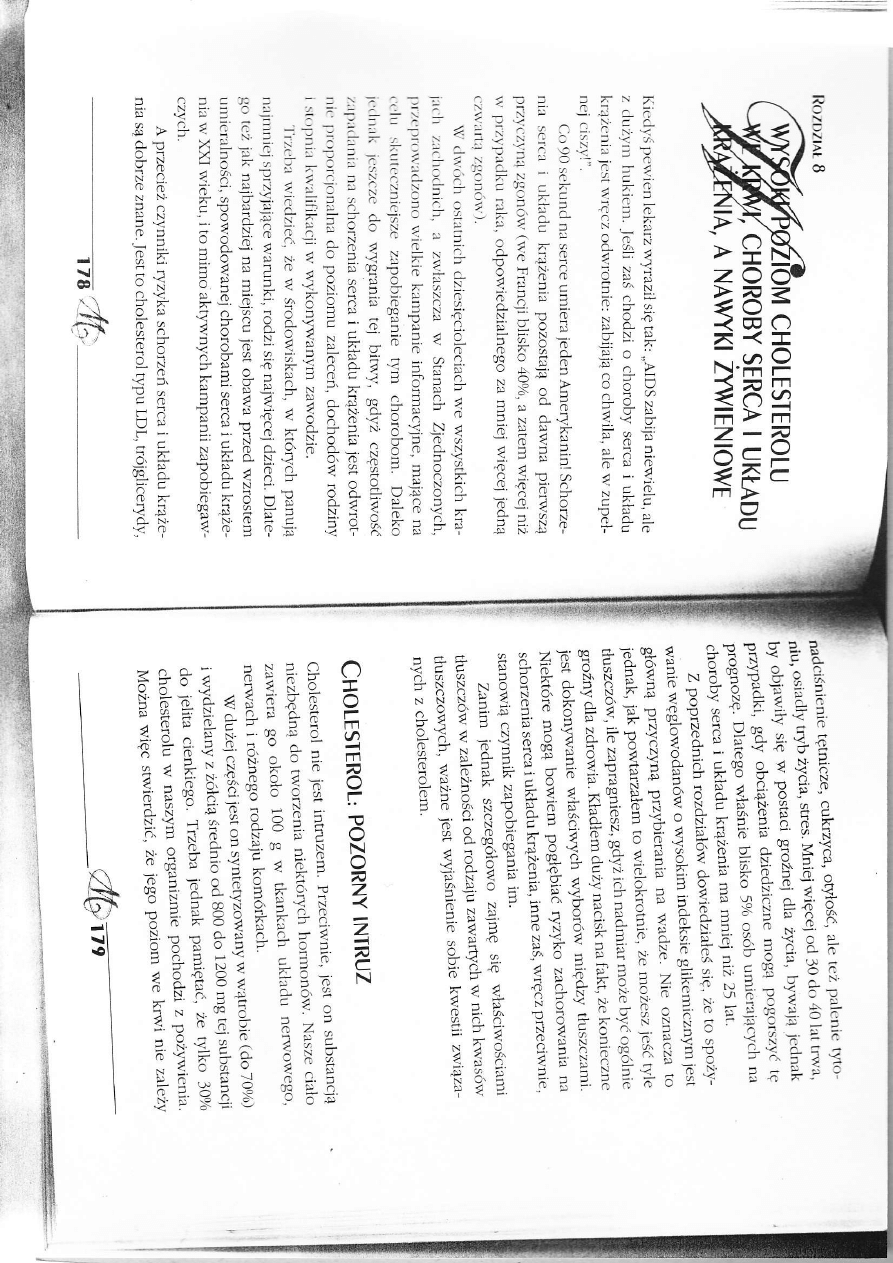 Rozdział 8
WYSOKI POZIOM CHOLESTEROLU
WE KRWI, CHOROBY SERCA I UKŁADU
KRĄŻENIA, A NAWYKI ŻYWIENIOWE
Kiedyś pewien lekarz wyraził się tak: „AIDS zabija niewielu, ale
z dużym hukiem. Jeśli zaś chodzi o choroby serca i układu
krążenia jest wręcz odwrotnie: zabijają co chwila, ale w zupeł-
nej ciszy!”.
Co 90 sekund na serce umiera jeden Amerykanin! Schorze-
nia serca i układu krążenia pozostają od dawna pierwszą
przyczyną zgonów (we Francji blisko 40%, a zatem więcej niż
w przypadku raka, odpowiedzialnego za mniej więcej jedną
czwartą zgonów).
W dwóch ostatnich dziesięcioleciach we wszystkich kra-
jach zachodnich, a zwłaszcza w Stanach Zjednoczonych,
przeprowadzono wielkie kampanie informacyjne, mające na
celu skuteczniejsze zapobieganie tym chorobom. Daleko
jednak jeszcze do wygrania tej bitwy, gdyż częstotliwość
zapadania na schorzenia serca i układu krążenia jest odwrot-
nie proporcjonalna do poziomu zaleceń, dochodów rodziny
i stopnia kwalifikacji w wykonywanym zawodzie.
Trzeba wiedzieć, że w środowiskach, w których panują
najmniej sprzyjające warunki, rodzi się najwięcej dzieci. Dlate-
go też jak najbardziej na miejscu jest obawa przed wzrostem
umieralności, spowodowanej chorobami serca i układu krąże-
nia w XXI wieku, i to mimo aktywnych kampanii zapobiegaw-
czych.
A przecież czynniki ryzyka schorzeń serca i układu krąże-
nia są dobrze znane. Jest to cholesterol typu LDL, trójglicerydy,
178
nadciśnienie tętnicze, cukrzyca, otyłość, ale też palenie tyto-
niu, osiadły tryb życia, stres. Mniej więcej od 30 do 40 lat trwa,
by objawiły się w postaci groźnej dla życia, bywają jednak
przypadki, gdy obciążenia dziedziczne mogą pogorszyć tę
prognozę. Dlatego właśnie blisko 5% osób umierających na
choroby serca i układu krążenia ma mniej niż 25 lat.
Z poprzednich rozdziałów dowiedziałeś się, że to spoży-
wanie węglowodanów o wysokim indeksie glikemicznym jest
główną przyczyną przybierania na wadze. Nie oznacza to
jednak, jak powtarzałem to wielokrotnie, że możesz jeść tyle
tłuszczów, ile zapragniesz, gdyż ich nadmiar może być ogólnie
groźny dla zdrowia. Kładłem duży nacisk na fakt, że konieczne
jest dokonywanie właściwych wyborów między tłuszczami.
Niektóre mogą bowiem pogłębiać ryzyko zachorowania na
schorzenia serca i układu krążenia, inne zaś, wręcz przeciwnie,
stanowią czynnik zapobiegania im.
Zanim jednak szczegółowo zajmę się właściwościami
tłuszczów w zależności od rodzaju zawartych w nich kwasów
tłuszczowych, ważne jest wyjaśnienie sobie kwestii związa-
nych z cholesterolem.
Cholesterol: pozorny intruz
Cholesterol nie jest intruzem. Przeciwnie, jest on substancją
niezbędną do tworzenia niektórych hormonów. Nasze ciało
zawiera go około 100 g w tkankach układu nerwowego,
nerwach i różnego rodzaju komórkach.
W dużej części jest on syntetyzowany w wątrobie (do 70%)
i wydzielany z żółcią średnio od 800 do 1200 mg tej substancji
do jelita cienkiego. Trzeba jednak pamiętać, że tylko 30%
cholesterolu w naszym organizmie pochodzi z pożywienia.
Można więc stwierdzić, że jego poziom we krwi nie zależy
179